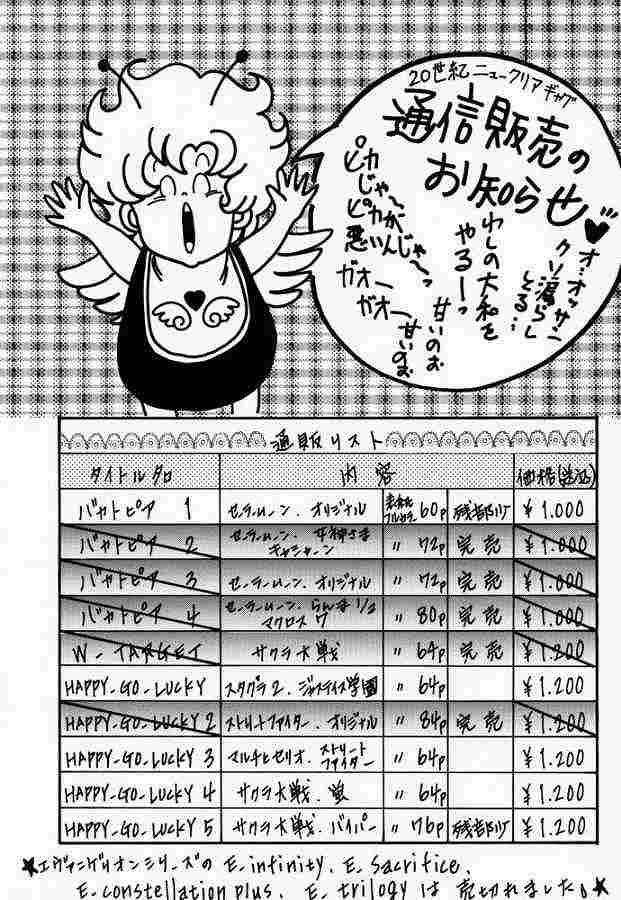 20世紀ニュークリアギャグ
通信販売の
お知らせ♥
オ…オッサン
クソ漏らし
とる…
わしの大和を
やるーっ
甘いのお
甘いのお
ピカ
じゃ〜
ピカが
悪いんじゃ〜っ
ガオー
ガオー
通販リスト
タイトル名 内容 価格(送込)
バカトピア 1 セーラームーン.オリジナル 表紙フルカラー 60p 残部少 ¥1.000
バカトピア 2 セーラームーン.女神さま キャシャーン 〃 72p 完売 ¥1.000
バカトピア 3 セーラームーン.オリジナル 〃 72p 完売 ¥1.000
バカトピア 4 セーラームーン.らんま1/2 マクロス7 〃 80p 完売 ¥1.000
W-TARGET サクラ大戦 〃 64p 完売 ¥1.200
HAPPY-GO-LUCKY スタグラ2.ジャスティス学園 〃 64p ¥1.200
HAPPY-GO-LUCKY 2 ストリートファイター.オリジナル 〃 84p 完売 ¥1.200
HAPPY-GO-LUCKY 3 マルチとセリオ.ストリートファイター 〃 64p ¥1.200
HAPPY-GO-LUCKY 4 サクラ大戦.蛍 〃 64p ¥1.200
HAPPY-GO-LUCKY 5 サクラ大戦.バイパー 〃 76p 残部少 ¥1.200
★エヴァンゲリオンシリーズの E-infinity. E-sacrifice.
E-constellation plus. E-trilogy は 売切れました。★